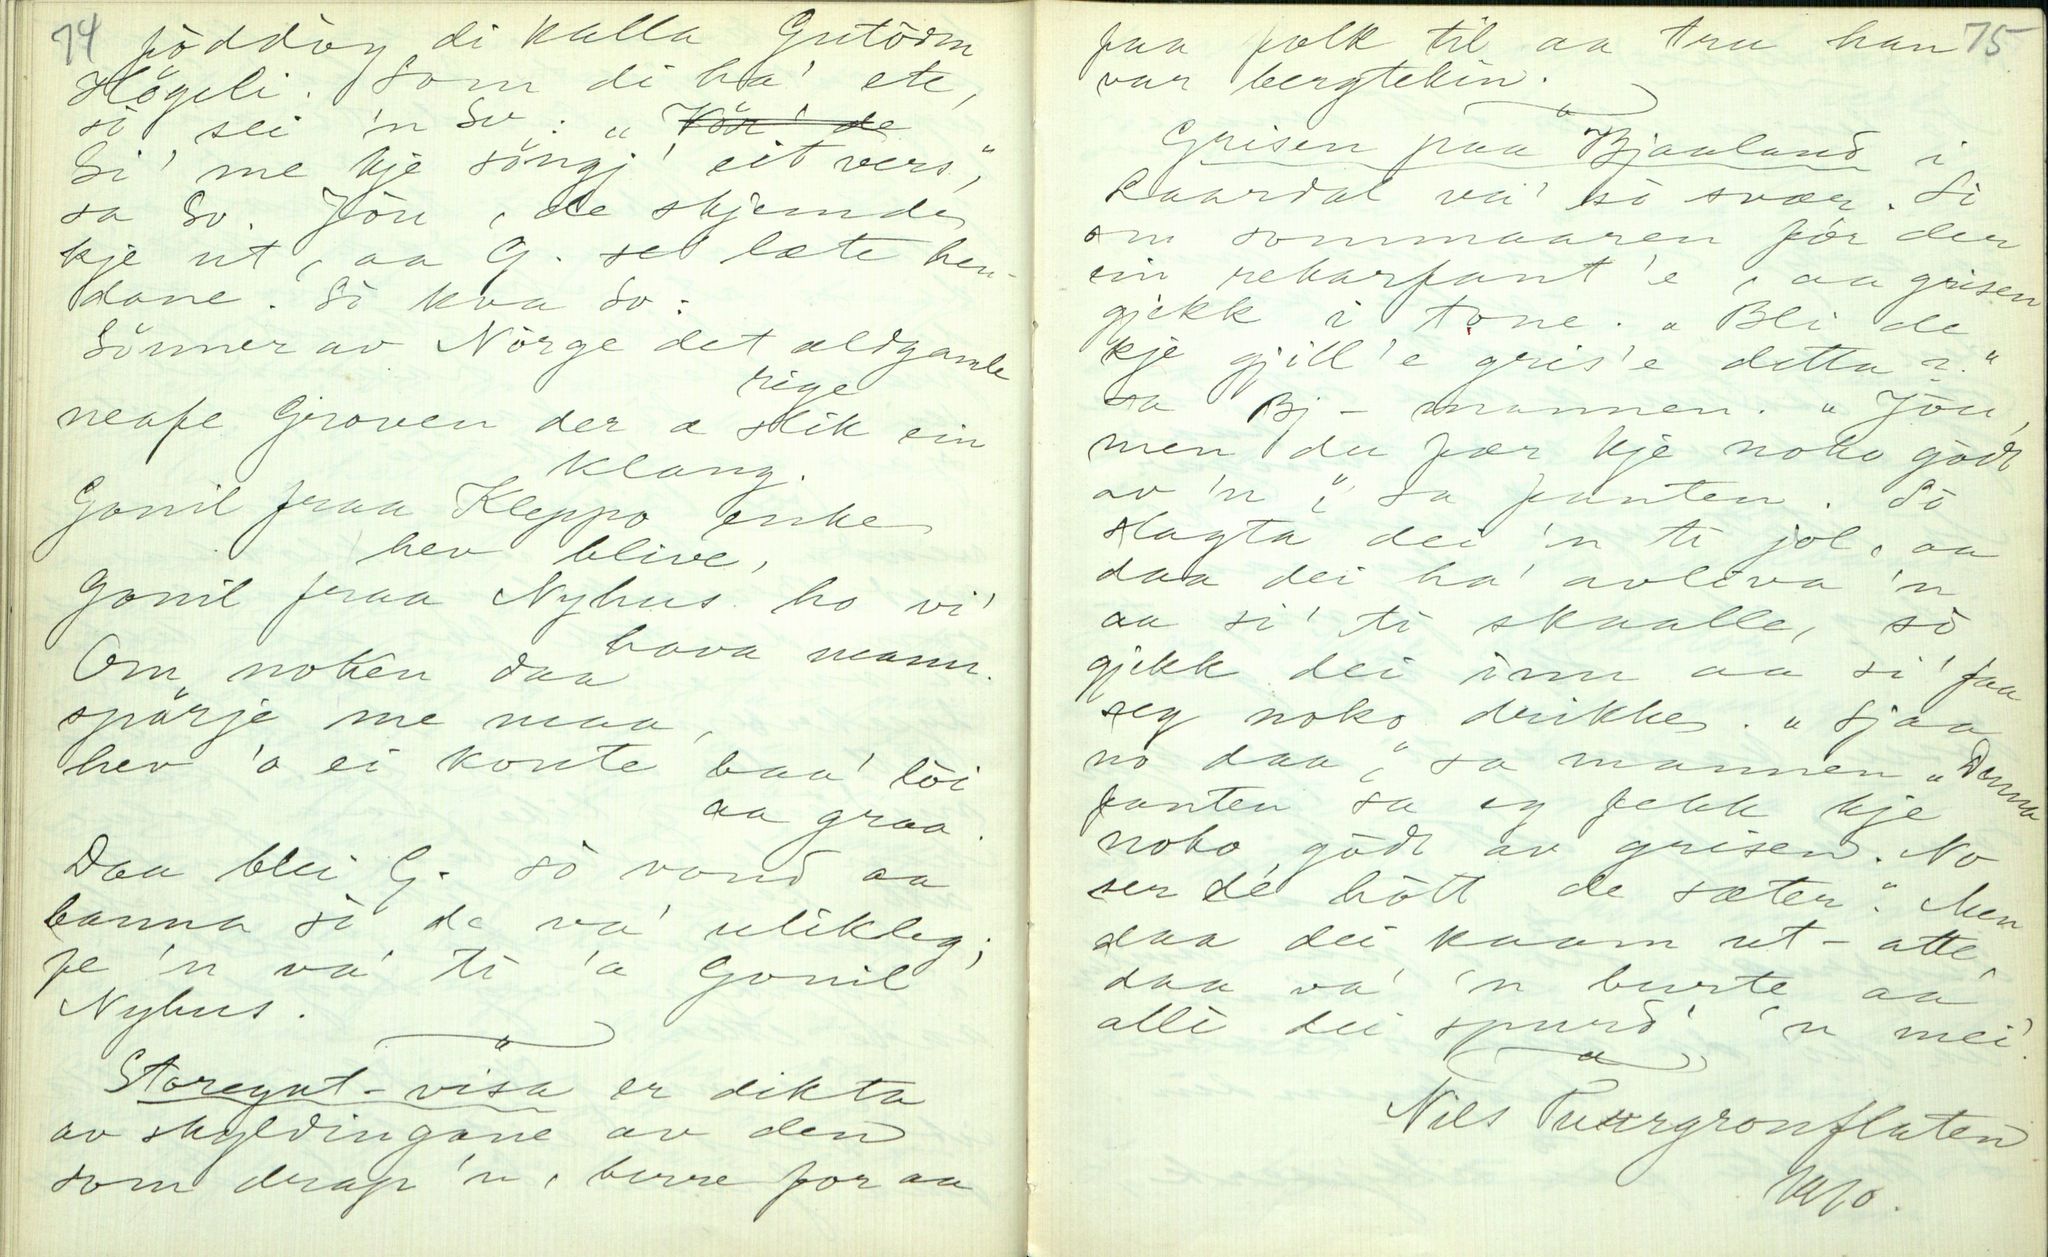 74
föddöy di kalla Gutôrm
Högeli. Som di ha' ete,
sò sei 'n So: „Kör' de
Si' me kje söngj' eit vers,"
sa So. Jöu, de skjemde
kje ut, aa G. se' læte hen-
dane. Sò kva So:
Sönner av Nörge det ældgamle
rige
neafe Groven der æ slik ein
klang.
Gonil fraa Kleppo enke
hev blive,
Gonil fraa Nyhus ho vi'
hava mann.
Om noken daa
spörje me maa,
hev 'o ei konte baa' löi
aa graa.
Daa blei G. sò vond aa
banna sò de va' ulikleg;
fe 'n va' ti 'a Gonil
Nyhus.
Storegut-visa er dikta
av skyldingane av den
som drap 'n, berre for aa
75
faa folk til aa tru han
var bergtekin.
Grisen paa Bjaaland i
Laardal va' sò svær. Sò
om sommaaren fór der
ein rekarfant 'e, aa grisen
gjekk i tone. „Bli de
kje gjill 'e gris 'e detta?"
sa Bj-mannen. „Jöu,
men du fær kje noko gödt
av 'n," sa fanten. Sò
slagta dei 'n ti jol, aa
daa dei ha' avliva 'n
aa si' ti skaalle, sò
gjekk dei inn aa si' faa
seg noko drikke. „Sjaa
no daa," sa mannen „Denna
fanten sa eg fekk kje
noko gödt av grisen. No
ser de hött de sæter." Men
daa dei kaam ut-atte,
daa va' 'n burte aa
alli dei spurd' 'n mei'.
Nils
1910.